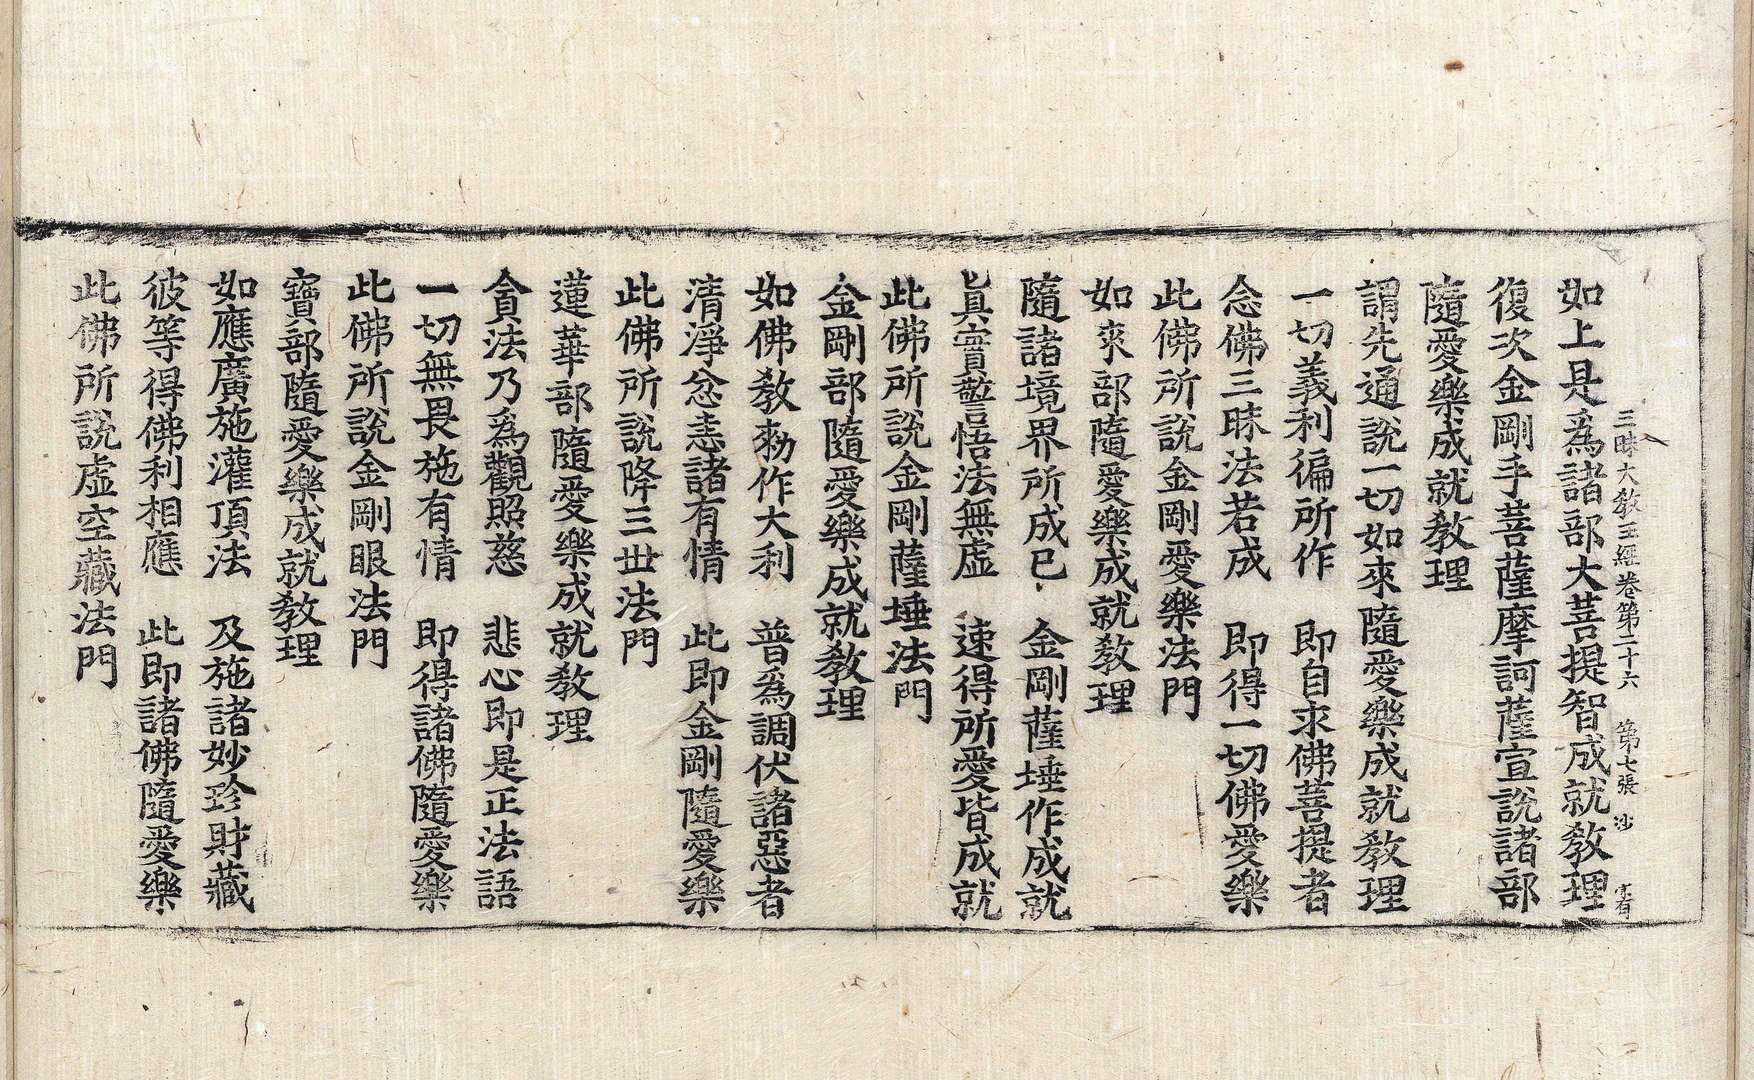 三昧大敎王經卷第二十六　第七張　沙
如上是爲諸部大菩提智成就敎理
復次金剛手菩薩摩訶薩宣說諸部
隨愛樂成就敎理
謂先通說一切如來隨愛樂成就敎理
一切義利徧所作　即自求佛菩提者
念佛三昧法若成　即得一切佛愛樂
此佛所說金剛愛樂法門
如來部隨愛樂成就敎理
隨諸境界所成已　金剛薩埵作成就
眞實警悟法無虛　速得所愛皆成就
此佛所說金剛薩埵法門
金剛部隨愛樂成就敎理
如佛敎勑作大利　普爲調伏諸惡者
清淨忿恚諸有情　此即金剛隨愛樂
此佛所說降三世法門
蓮華部隨愛樂成就敎理
貪法乃爲觀照慈　悲心即是正法語
一切無畏施有情　即得諸佛隨愛樂
此佛所說金剛眼法門
寶部隨愛樂成就敎理
如應廣施灌頂法　及施諸妙珍財藏
彼等得佛利相應　此即諸佛隨愛樂
此佛所說虛空藏法門